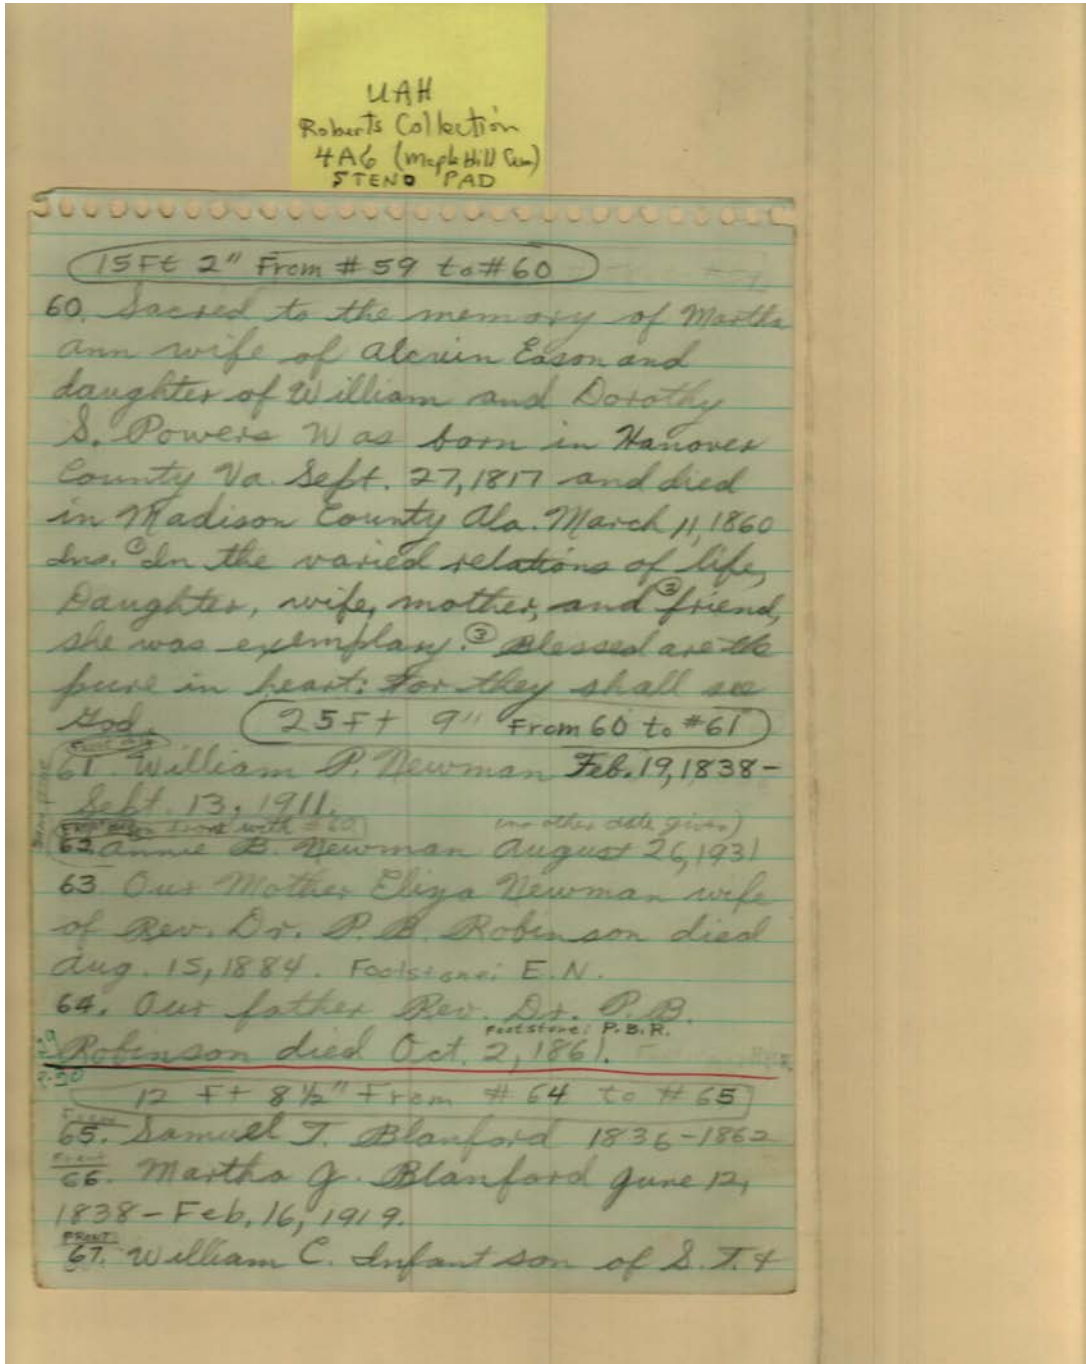 UAH
Roberts Collection
4A6 (Maple Hill Cem)
STENO PAD
15Ft 2" From #59 to #60
60. Sacred to the memory of Martha
Ann wife of Alcuin Eason and
daughter of William and Dorothy
S. Powers Was born in Hanover
County Va. Sept. 27, 1817 and died
in Madison County Ala. March 11, 1860
Ins. In the varied relations of life,
Daughter, wife, mother, and ③ friend,
she was exemplary. ③ Blessed are the
pure in heart: For they shall see
God.
25Ft 9" From 60 to #61
61. William P. Newman Feb. 19, 1838-
Sept. 13, 1911.
with
(no other date given)
62. Annie B. Newman August 26, 1931
63 Our Mother Eliza Newman wife
of Rev. Dr. P. B. Robinson died
Aug. 15, 1884. Footstone: E. N.
64. Our father Rev. Dr. P. B.
Footstone: P. B. R.
Robinson died Oct. 2, 1861.
12 Ft 8 1/2" From #64 to #65
Front
65. Samuel T. Blanford 1836-1862
Front
66. Martha J. Blanford June 12,
1838-Feb. 16, 1919.
FRONT:
67. William C. Infant son of S. T. &